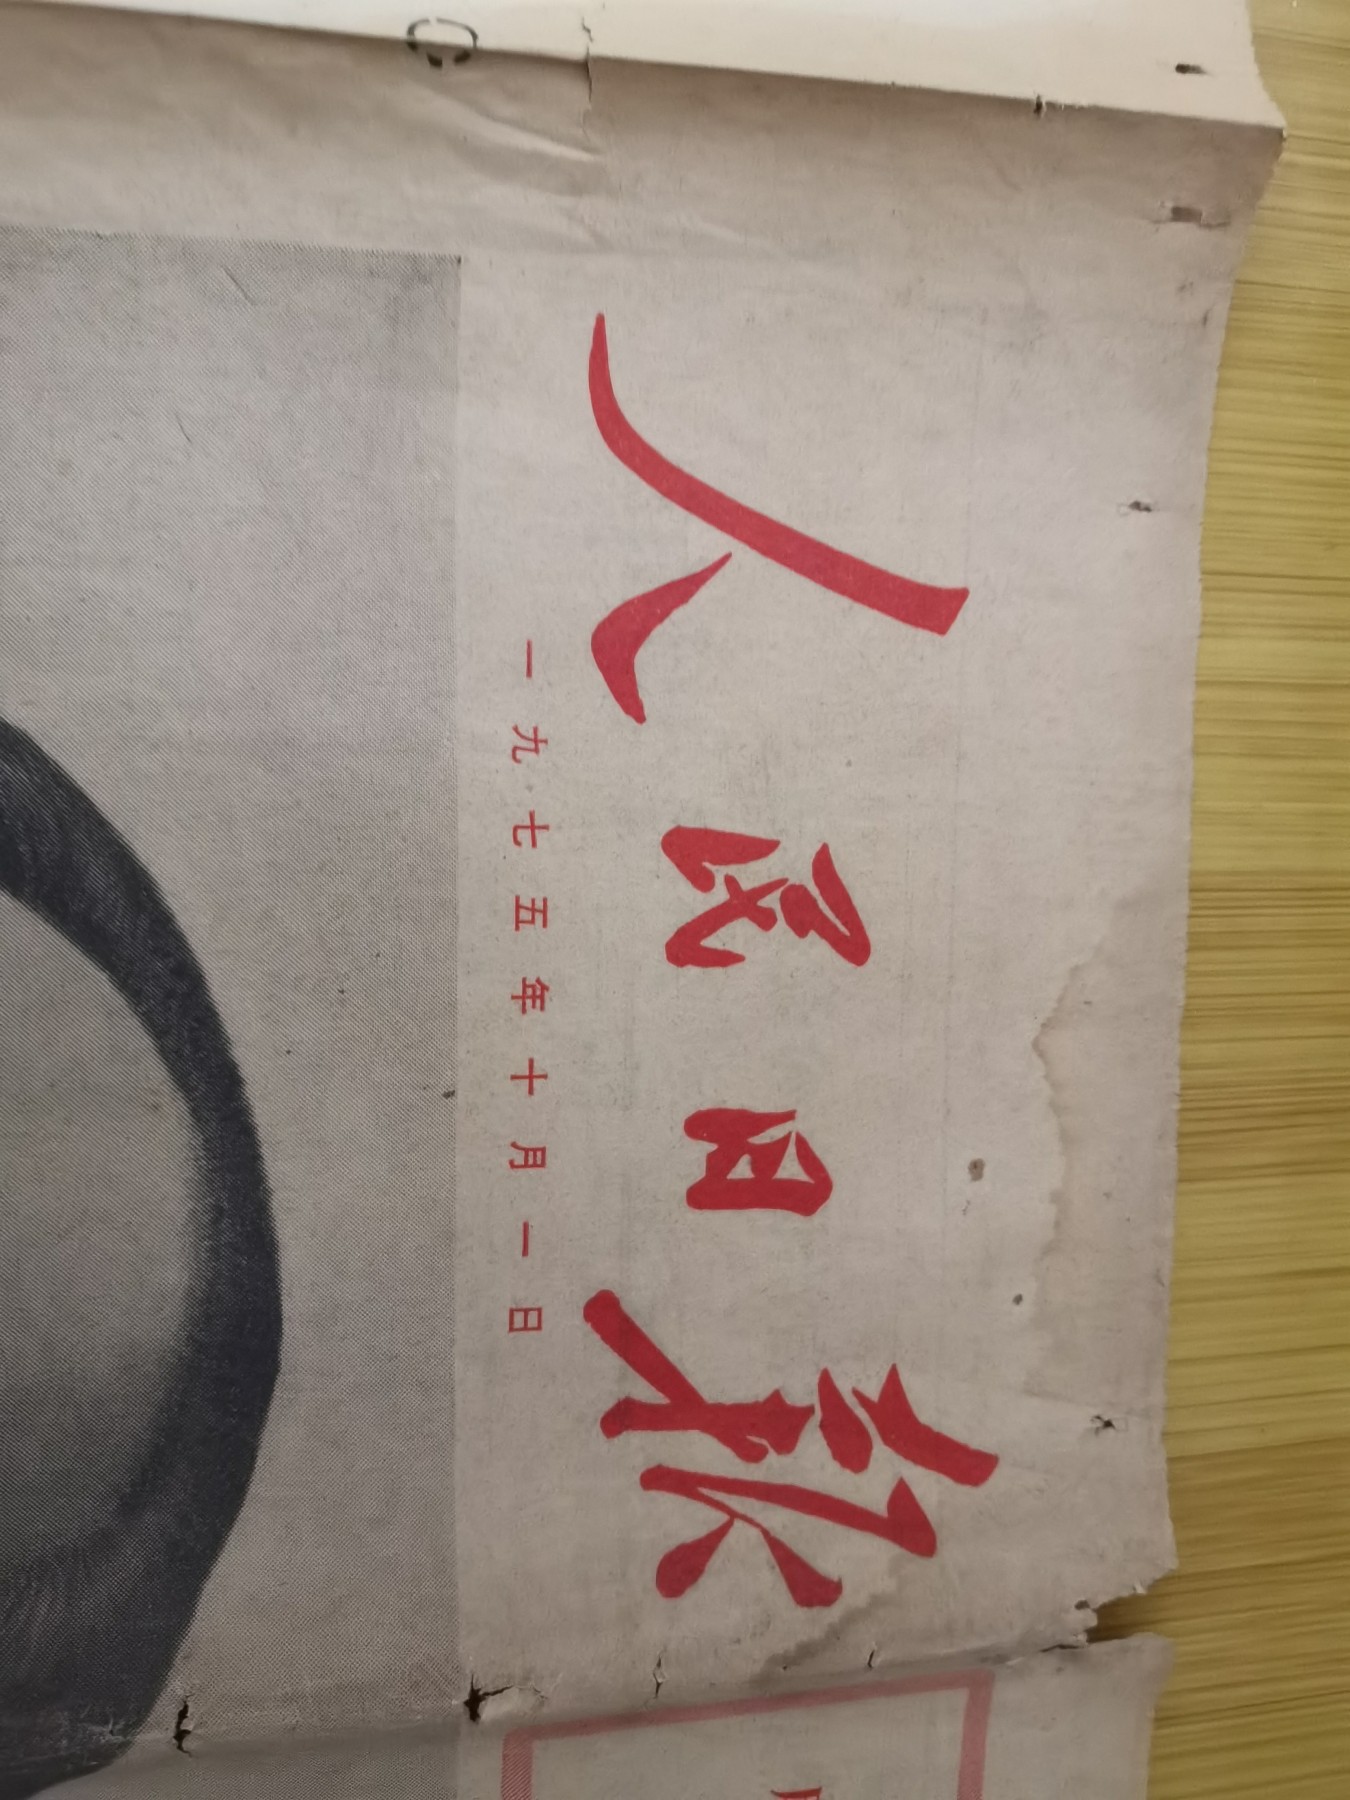 人民日报
一九七五年十月一日